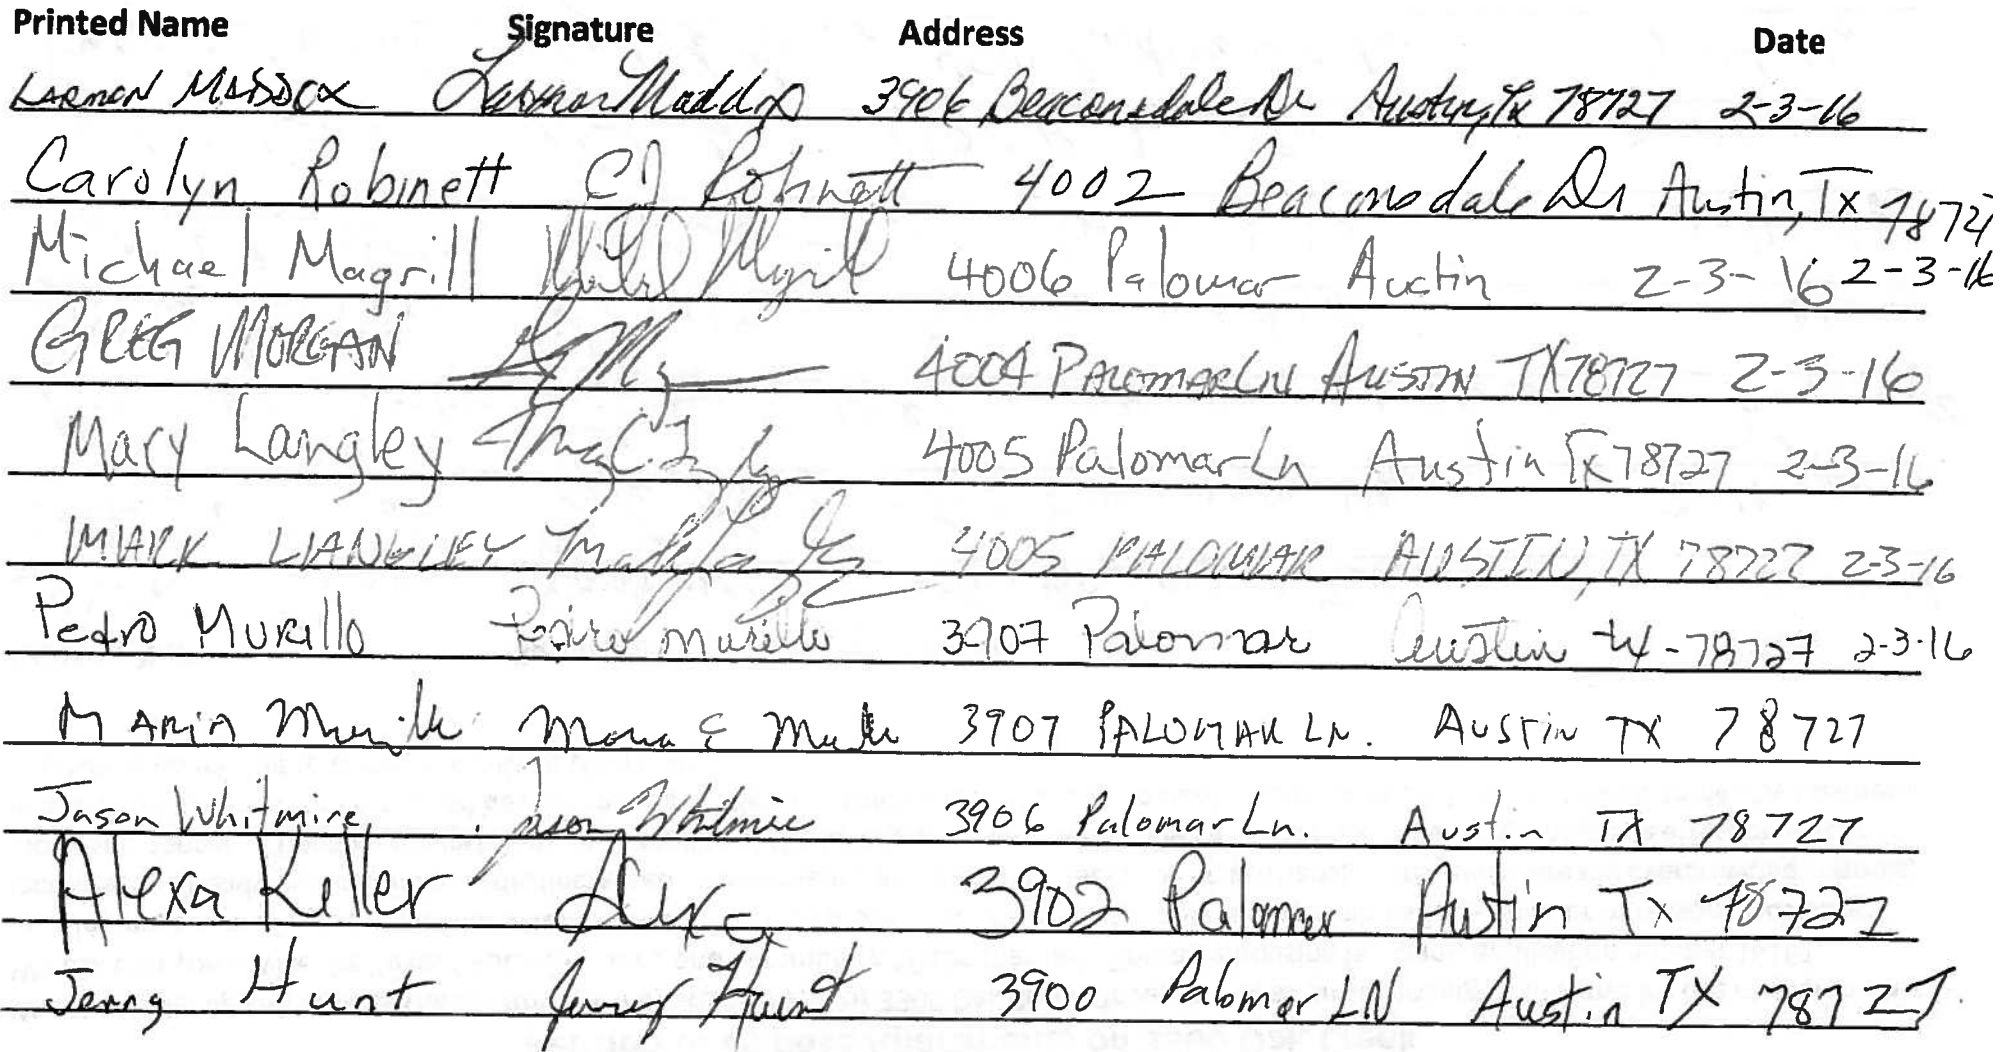 Printed Name Signature Address Date
LARMON MADDOX Larmon Maddox 3906 Beaconsdale Dr Austin, Tx 78727 2-3-16
Carolyn Robinett CJ Robinett 4002 Beaconsdale Dr Austin, Tx 78727
Michael Magrill 4006 Palomar Austin 2-3-16 2-3-16
GREG MORGAN 4004 PALOMAR LN AUSTIN TX 78727 2-3-16
Mary Langley 4005 Palomar Ln Austin Tx 78727 2-3-16
MARK LANGLEY 4005 PALOMAR AUSTIN, TX 78727 2-3-16
Pedro Murillo Pedro Murillo 3907 Palomar Austin tx-78727 2-3-16
MARIA Murillo 3907 PALOMAR LN. Austin TX 78727
Jason Whitmire Jason Whitmire 3906 Palomar Ln. Austin TX 78727
Alexa Keller Alexa 3902 Palomar Austin Tx 78727
Jerry Hunt Jerry Hunt 3900 Palomar LN Austin TX 78727.